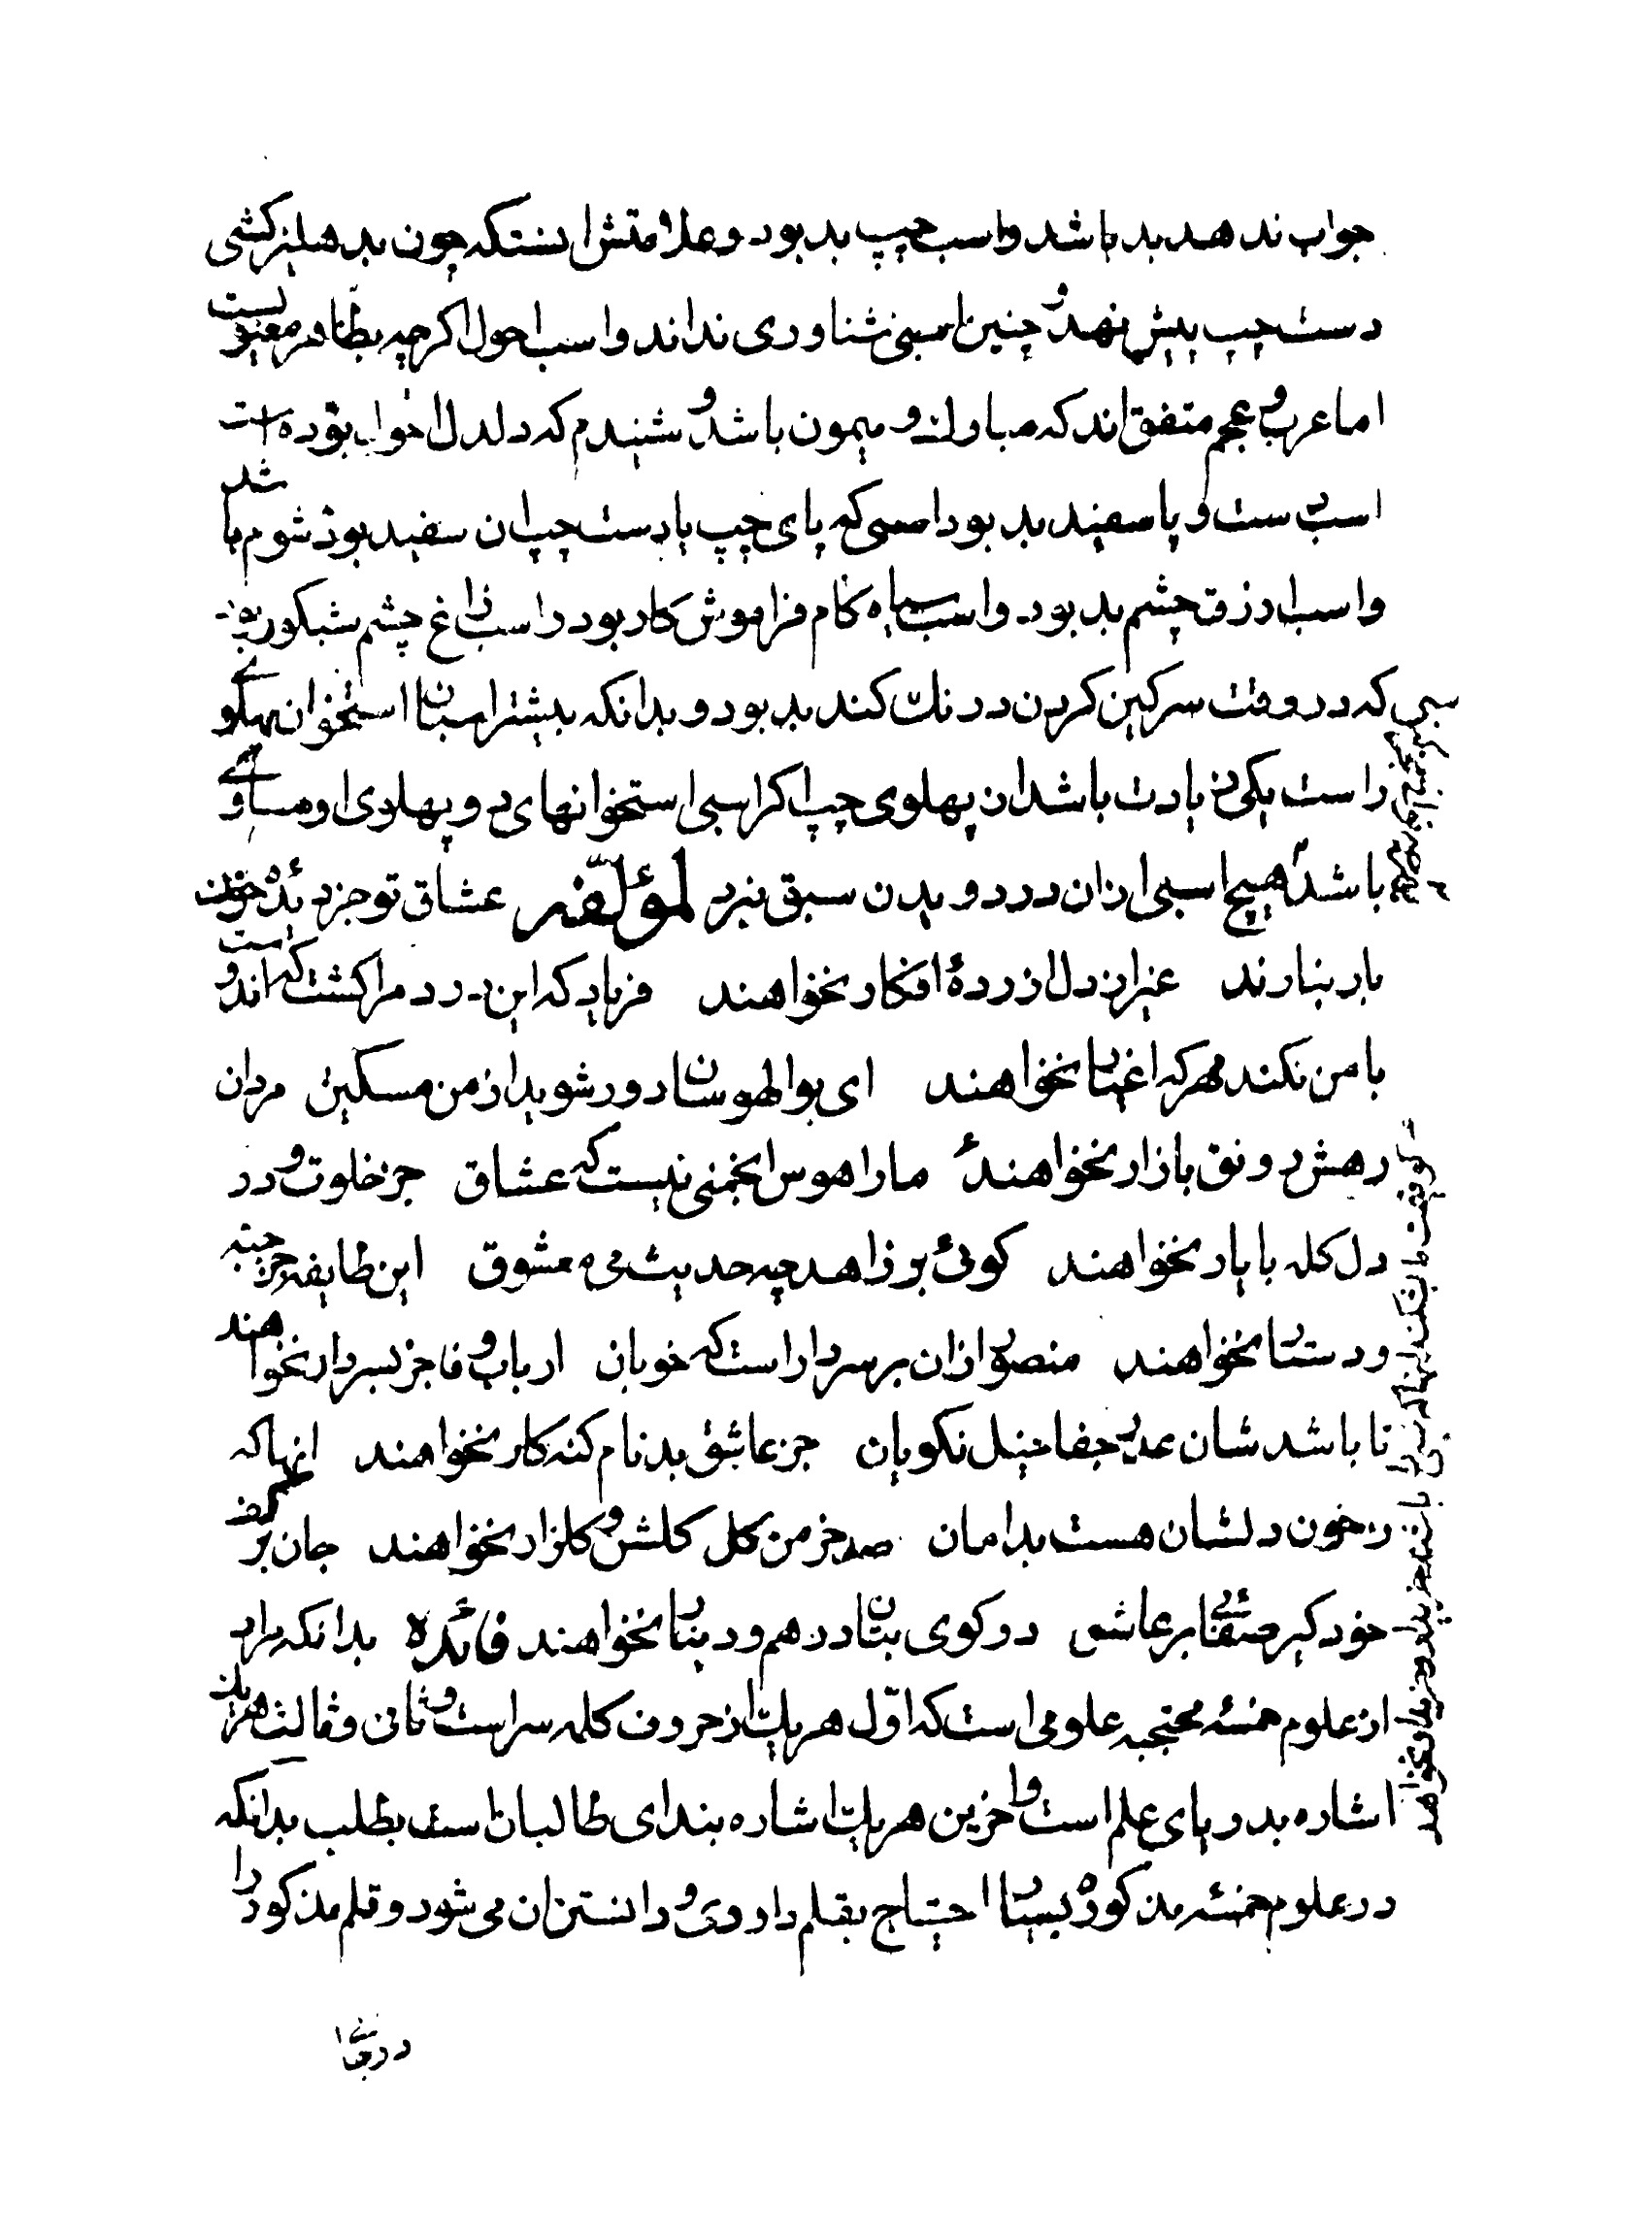 جواب ندهد بد باشد و اسب چپ بد بود و علامتش انستکه چون بدهلیز کشی
دست چپ پیش نهد و چنین اسبی شناوری نداند و اسب احول اکرچه بظاهر معیوبست
اما عرب و عجم متفق اند که مبارک و میمون باشد و شنیدم که دلدل احول بوده است
اسب دست و پا سفید بد بود اسبی که پای چپ یا دست چپ ان سفید بود شوم باشد
و اسب ازرق چشم بد بود و اسب سیاه کام فراموش کار بود و اسب زاغ چشم شبکور بود
سبی که در وقت سرکین کردن درنک کند بد بود و بدانکه بیشتر اسبان استخوان پهلوی
راست یکی زیادت باشد ان پهلوی چپ اکر اسبی استخوانهای دو پهلوی او مساوی
باشد هیچ اسبی ازان در دویدن سبق نبرد لمؤلفه عشاق تو جز دیده خون
بار نیارند غیر از دل ازرده افکار نخواهند فریاد که این درد مرا کشت که اندو
با من نکند مهر که اغیار نخواهند ای بوالهوسان دور شوید از من مسکین مردان
رهش رونق بازار نخواهند ما را هوس انجمنی نیست که عشاق جز خلوت و در
دل کله با یار نخواهند کوئی بر زاهد چه حدیث می و معشوق این طایفه جز جبه
و دستار نخواهند منصور ازان بر سر دار است که خوبان ارباب وفا جز بسر دار نخواهند
تا باشدشان عذر جفا خیل نکویان جز عاشق بدنام کنه کار نخواهند انها که
زخون دلشان هست بدامان صد خرمن کل کلشن و کلزار نخواهند جان بر کف
خود کیر صفائی بر عاشق در کوی بتان درهم و دینار نخواهند فائده بدانکه مراد
از علوم خمسه محتجبه علومی است که اول هر یک از حروف کله سر است و ثانی و ثالث هر یک
اشاره بدریای علم است و اخرین هر یک اشاره بندای طالبان است بطلب بدانکه
در علوم خمسه مذکوره بسیار احتیاج بقلم داودی و دانستن ان می شود و قلم مذکور را